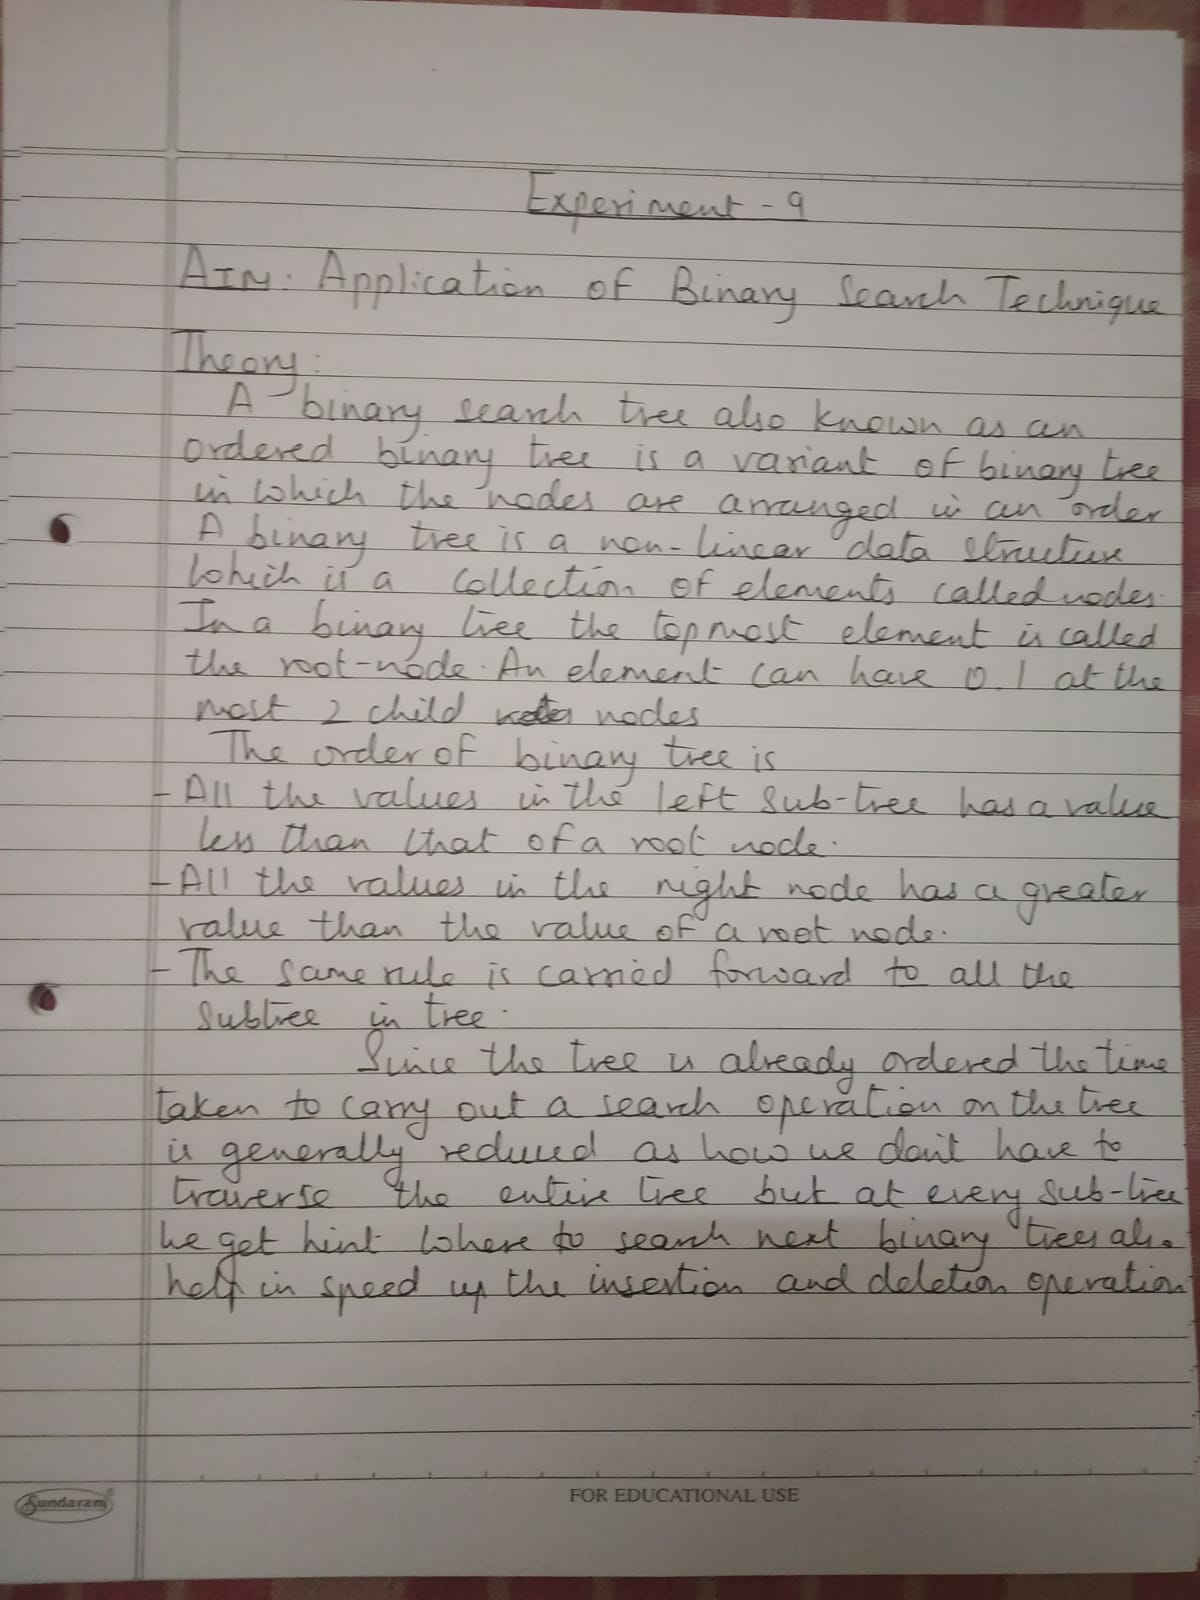 Experiment - 9
AIM: Application of Binary Search Technique
Theory:
A binary search tree also known as an
ordered binary tree is a variant of binary tree
in which the nodes are arranged in an order
A binary tree is a non-linear data structure
which is a collection of elements called nodes.
In a binary tree the topmost element is called
the root-node. An element can have 0.1 at the
most 2 child nodes
The order of binary tree is
- All the values in the left sub-tree has a value
less than that of a root node.
- All the values in the right node has a greater
value than the value of a root node.
- The same rule is carried forward to all the
subtree in tree.
Since the tree is already ordered the time
taken to carry out a search operation on the tree
is generally reduced as how we don't have to
traverse the entire tree but at every sub-tree
we get hint where to search next binary trees also
help in speed up the insertion and deletion operation
Sundaram
FOR EDUCATIONAL USE